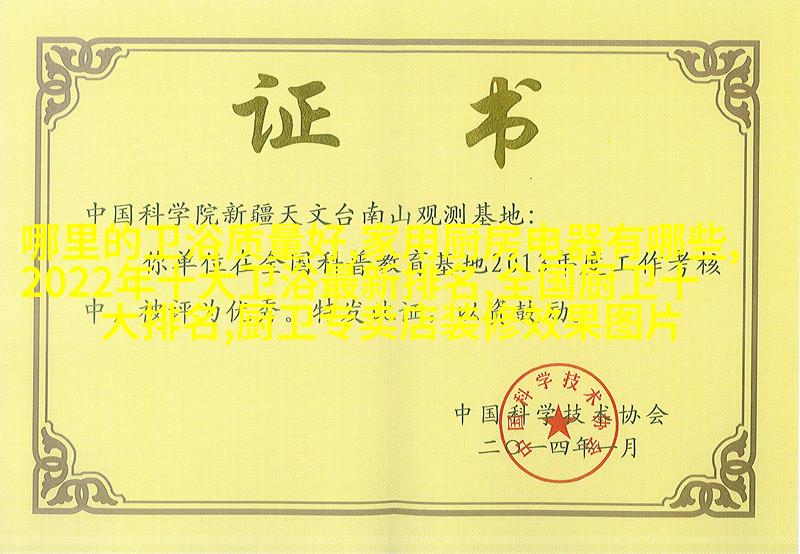 证书
中国科学院新疆天文台南山观测基地:
你单位在全国科普教育基地2013年度工作考核
中,被评为优秀。特发此证,以资鼓励。
哪里的卫浴质量好,家用厨房电器有哪些,
2022年十大卫浴最新排名,全国厨卫十
大排名,厨卫专卖店装修效果图片
中国科学技术协会
二〇一四年一月
中国科学技术协会